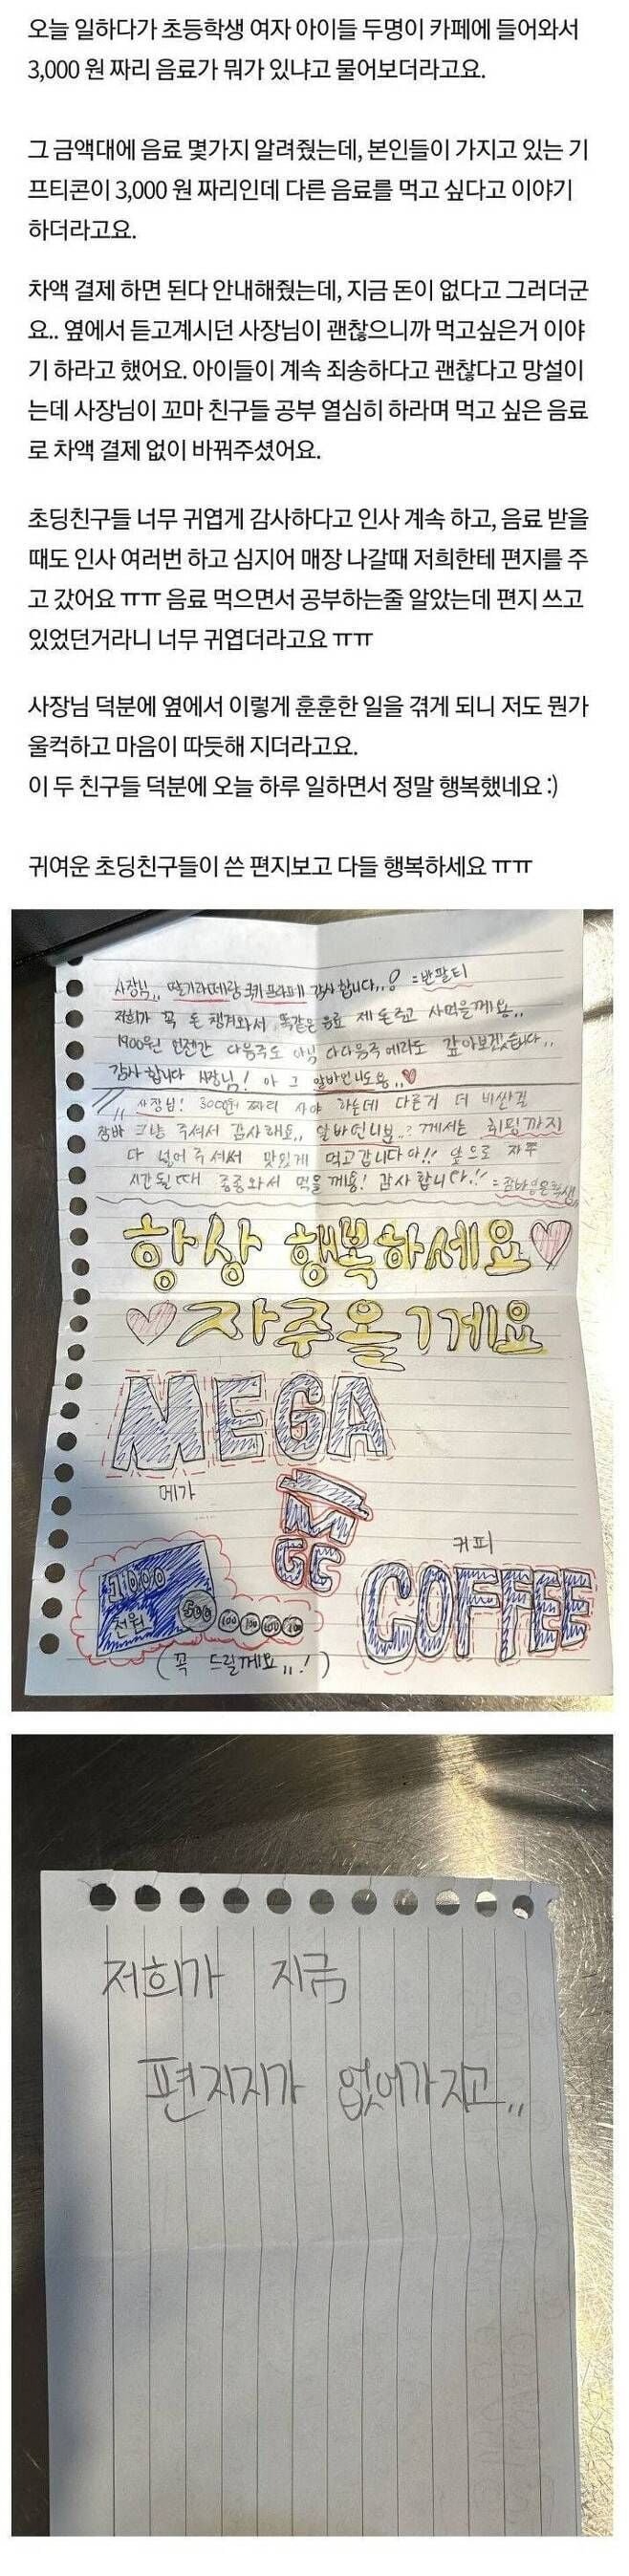 오늘 일하다가 초등학생 여자 아이들 두명이 카페에 들어와서
3,000 원 짜리 음료가 뭐가 있냐고 물어보더라고요.
그 금액대에 음료 몇가지 알려줬는데, 본인들이 가지고 있는 기
프티콘이 3,000 원 짜리인데 다른 음료를 먹고 싶다고 이야기
하더라고요.
차액 결제 하면 된다 안내해줬는데, 지금 돈이 없다고 그러더군
요.. 옆에서 듣고계시던 사장님이 괜찮으니까 먹고싶은거 이야
기 하라고 했어요. 아이들이 계속 죄송하다고 괜찮다고 망설이
는데 사장님이 꼬마 친구들 공부 열심히 하라며 먹고 싶은 음료
로 차액 결제 없이 바꿔주셨어요.
초딩친구들 너무 귀엽게 감사하다고 인사 계속 하고, 음료 받을
때도 인사 여러번 하고 심지어 매장 나갈때 저희한테 편지를 주
고 갔어요 ㅠㅠ 음료 먹으면서 공부하는줄 알았는데 편지 쓰고
있었던거라니 너무 귀엽더라고요 ㅠㅠ
사장님 덕분에 옆에서 이렇게 훈훈한 일을 겪게 되니 저도 뭔가
울컥하고 마음이 따듯해 지더라고요.
이 두 친구들 덕분에 오늘 하루 일하면서 정말 행복했네요 :)
귀여운 초딩친구들이 쓴 편지보고 다들 행복하세요 ㅠㅠ
사장님,, 딸기라떼랑 쿠키프라페 감사합니다,,! =반팔티
저희가 꼭 돈 챙겨와서 똑같은 음료 제 돈주고 사먹을께요..
1900원 언젠간 다음주도 아님 다다음주에라도 갚아보겠습니다..
감사합니다 사장님! 아 그 알바언니도용,,♥
사장님! 3000원 짜리 사야 하는데 다른거 더 비싼걸
그냥 주셔서 감사해요,, 알바언니분..? 께서는 휘핑까지
다 넣어주셔서 맛있게 먹고갑니다아!! 앞으로 자주
시간될때 종종와서 먹을께용! 감사합니다!!
항상 행복하세요♡
♡자주올게요
MEGA
메가
MGC
커피
COFFEE
1000
천원
500 100 100 100 100
(꼭 드릴께요,,!)
저희가 지금
편지지가 없어가지고,,